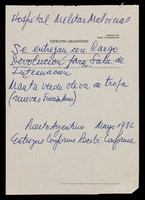 Hospital Militar Malvinas
EJERCITO ARGENTINO
Se entregan con Cargo
Devolución para Sala de
Internación
Manta verde oliva de tropa
(nuevas
Puerto Argentino Mayo 982
Entregue Conforme Recibí Conforme